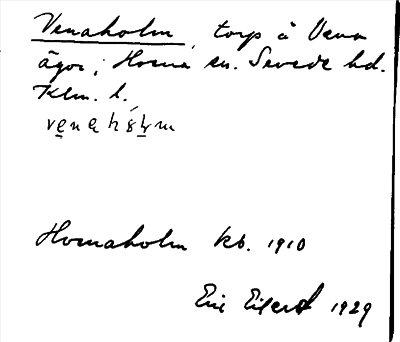 Venaholm, torp å Vena
ägor, Horna sn. Sevede hd.
Klm. l.
Hornaholm kb. 1910
Eric Eilert 1929